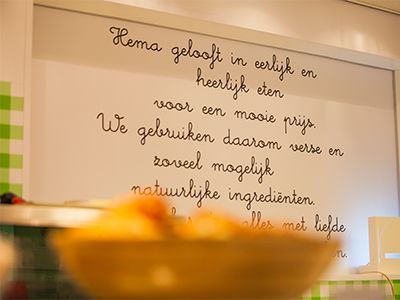 Hema gelooft in eerlijk en
heerlijk eten
voor een mooie prijs.
We gebruiken daarom verse en
zoveel mogelijk
natuurlijke ingrediënten.
alles met liefde